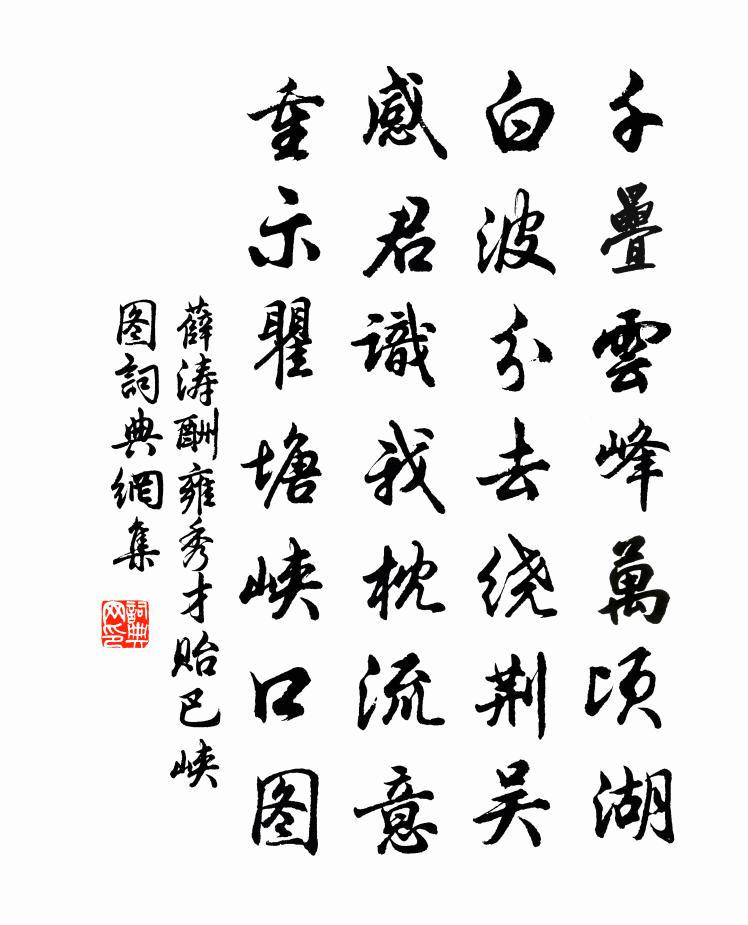 千疊雲峰萬頃湖
白波分去绕荆吴
感君識我枕流意
重示瞿塘峡口图
薛涛酬雍秀才貽巴峡
图詞典網集
詞典
网印